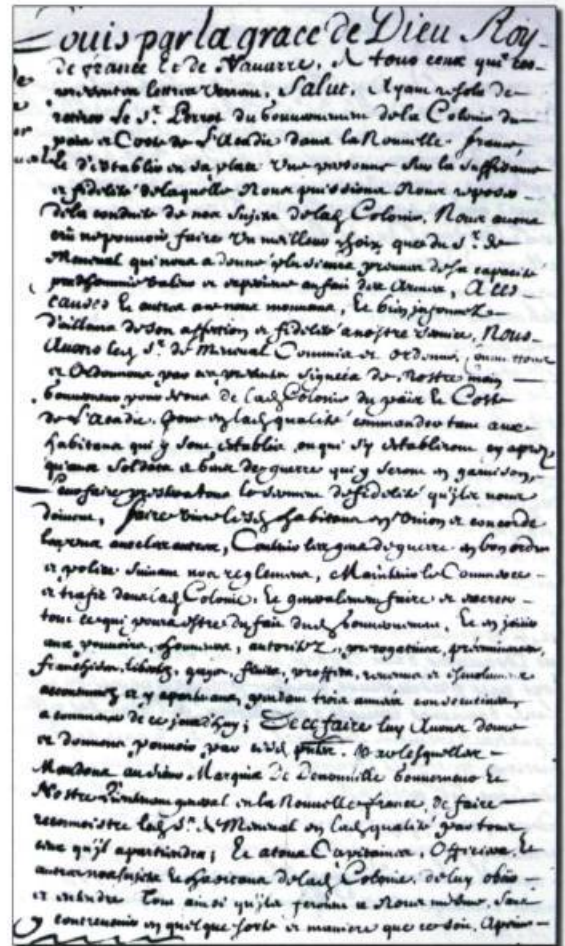 Louis par la grace de Dieu Roy
de france Et de Navarre, A tous ceux qui ces
lettres verront, Salut. Ayant resolu de
retirer le Sr. Perrot du Gouvernement de la Colonie du
pais et Coste de L'Acadie dans la Nouvelle france,
Et d'establir en sa place Une personne Sur la suffisance
et fidelité de laquelle Nous puissions Nous reposer
de la conduite de nos Sujets de lad Colonie, Nous avons
crû ne pouvoir faire Un meilleur choix que du Sr. de
Meneval qui nous a donné plusieurs preuves de sa capacité
valeur et experience au fait des Armes, A ces
causes Et autres a ce nous mouvans, Et bien informez
d'ailleurs de son affection et fidelité a nostre service, Nous
Avons led Sr. de Meneval Commis et Ordonné,
et Ordonnons par ces presentes Signées de Nostre main
Gouverneur pour Nous de lad Colonie du païs Et Coste
de L'Acadie. Pour en lad qualité commander tant aux
habitans qui y sont establis, ou qui s'y establiront cy aprez
qu'aux Soldats et gens de guerre qui y seront en garnison,
faire prester a tous le serment de fidelité qu'ils nous
doivent, faire vivre lesd habitans en Union et concorde
les uns avec les autres, Contenir les gens de guerre en bon ordre
et police suivant nos reglemens, Maintenir le Commerce
et trafic dans lad Colonie, Et generalement faire et exercer
tout ce qui poura estre du fait dud Gouvernement, Et en jouir
aux pouvoirs, honneurs, autoritez, prerogatives, préeminences,
franchises, libertez, gages, fruits, proffits, revenus et
accoutumez et y apartenans, pendant trois années consecutives,
a commencer de ce jourdhuy; De ce faire luy Avons donné
et donnons pouvoir par cesd par lesquelles
Mandons au Sieur Marquis de Denonville Gouverneur Et
Nostre Lieutenant general en la Nouvelle france, de faire
reconnoistre led Sr. de Meneval en lad qualité par tous
ceux qu'il apartiendra; Et a tous Capitaines, Officiers, Et
autres nos sujets Et habitans de lad Colonie, de luy obeir
et entendre Tout ainsi qu'ils feroient a Nous mesme, Sans
y contrevenir en quelque sorte et maniere que ce soit, Apeine